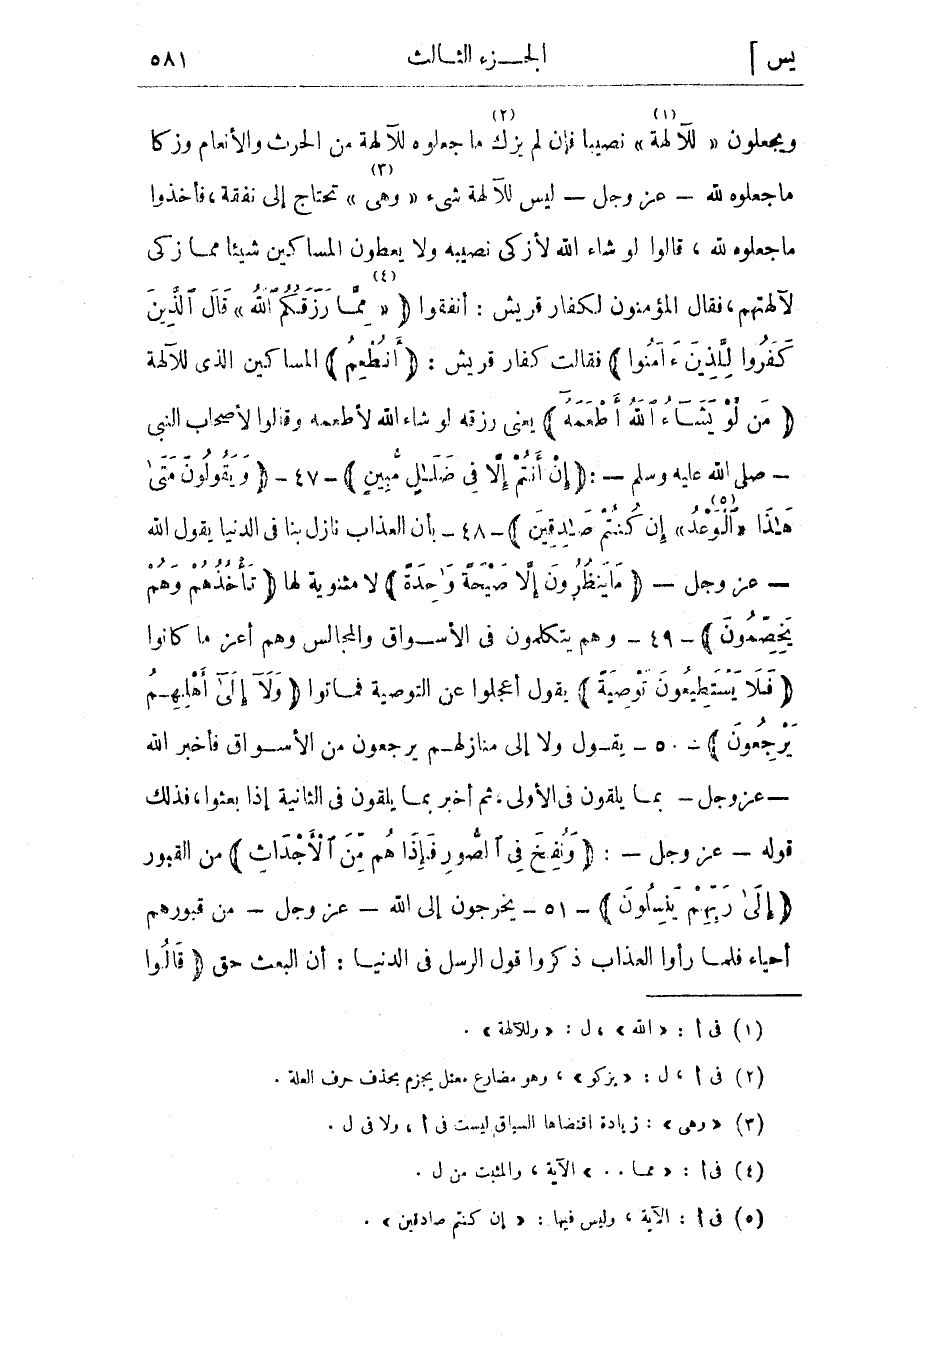 يس ] الجـــزء الثـالث ٥٨١
ويجعلون « للآلهة (١) » نصيبا فإن لم يزك (٢) ما جعلوه للآلهة من الحرث والأنعام وزكا
ماجعلوه لله — عز وجل — ليس للآلهة شىء « وهى (٣) » تحتاج إلى نفقة ، فأخذوا
ماجعلوه لله ، قالوا لو شاء الله لأزكى نصيبه ولا يعطون المساكين شيئا ممـا زكى
لآلهتهم ، فقال المؤمنون لكفار قريش : أنفقوا ﴿ « مِمَّا رَزَقَكُمُ ٱللَّهُ (٤) » قَالَ ٱلَّذِينَ
كَفَرُوا لِلَّذِينَ ءَامَنُوا ﴾ فقالت كفار قريش : ﴿ أَنُطْعِمُ ﴾ المساكين الذى للآلهة
﴿ مَن لَّوْ يَشَآءُ ٱللَّهُ أَطْعَمَهُٓ ﴾ يعنى رزقه لو شاء الله لأطعمه وقالوا لأصحاب النبى
— صلى الله عليه وسلم — : ﴿ إِنْ أَنتُمْ إِلَّا فِى ضَلَـٰلٍ مُّبِينٍ ﴾ - ٤٧ - ﴿ وَيَقُولُونَ مَتَىٰ
هَـٰذَا « ٱلْوَعْدُ (٥) » إِن كُنتُمْ صَـٰدِقِينَ ﴾ - ٤٨ - بأن العذاب نازل بنا فى الدنيا يقول الله
— عز وجل — ﴿ مَا يَنظُرُونَ إِلَّا صَيْحَةً وَٰحِدَةً ﴾ لا مثنوية لها ﴿ تَأْخُذُهُمْ وَهُمْ
يَخِصِّمُونَ ﴾ - ٤٩ - وهم يتكلمون فى الأسـواق والمجالس وهم أعز ما كانوا
﴿ فَلَا يَسْتَطِيعُونَ تَوْصِيَةً ﴾ يقول أعجلوا عن التوصية فمـاتوا ﴿ وَلَآ إِلَىٰٓ أَهْلِهِـمْ
يَرْجِعُونَ ﴾ - ٥٠ - يقـول ولا إلى منازلهـم يرجعون من الأسـواق فأخبر الله
— عز وجل — بمـا يلقون فى الأولى ، ثم أخبر بمـا يلقون فى الثانية إذا بعثوا ، فذلك
قوله — عز وجل — : ﴿ وَنُفِخَ فِى ٱلصُّورِ فَإِذَا هُم مِّنَ ٱلْأَجْدَاثِ ﴾ من القبور
﴿ إِلَىٰ رَبِّهِمْ يَنسِلُونَ ﴾ - ٥١ - يخرجون إلى الله — عز وجل — من قبورهم
أحياء فلمـا رأوا العذاب ذكروا قول الرسل فى الدنيـا : أن البعث حق ﴿ قَالُوا
(١) فى أ : « الله » ، ل : « وللآلهة » .
(٢) فى أ ، ل : « يزكو » ، وهو مضارع معتل يجزم بحذف حرف العلة .
(٣) « وهى » : زيادة اقتضاها السياق ليست فى أ ، ولا فى ل .
(٤) فى أ : « ممـا .. » الآية ، والمثبت من ل .
(٥) فى أ : الآية ، وليس فيها : « إن كنتم صادقين » .